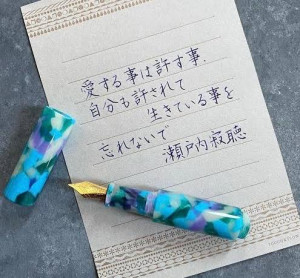 愛する事は許す事.
自分も許されて
生きている事を
忘れないで
瀬戸内寂聴